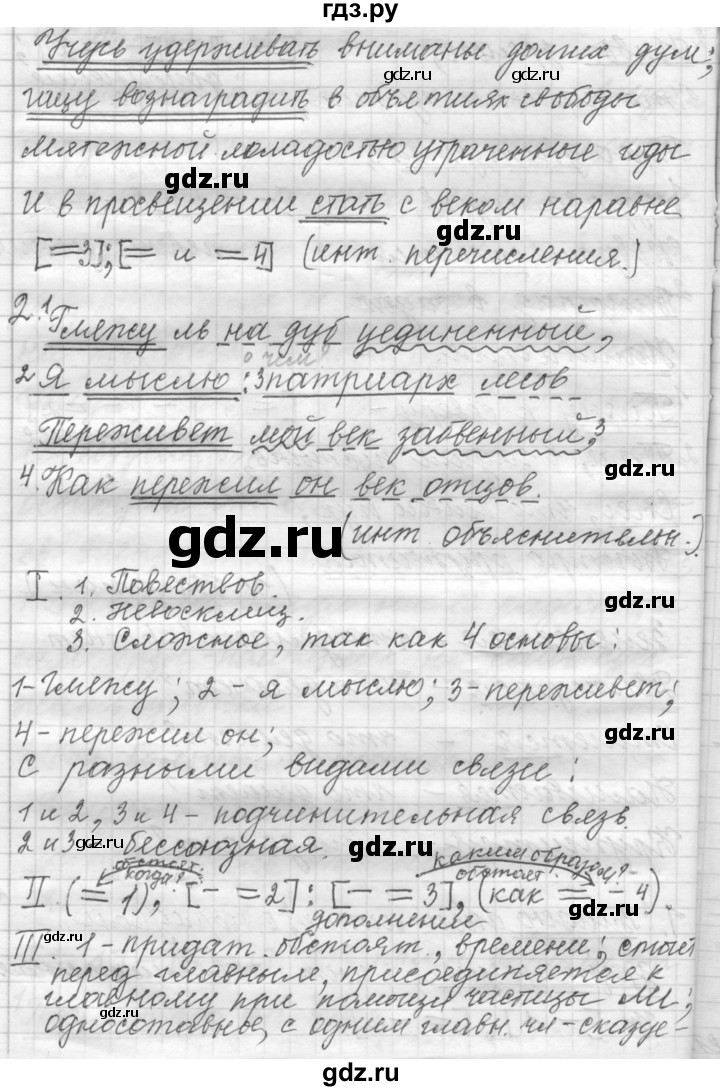 гдз.ру
Учусь удерживать вниманье долгих дум;
gdz.ru gdz.ru
ищу вознаградить в объятиях свободы
Мятежной младостью утраченные годы
gdz.ru gdz.ru
И в просвещении стать с веком наравне
[=3]; [= и = 4] (инт. перечисления.)
gdz.ru
2.¹Гляжу ль на дуб уединенный,
о чем?
2 Я мыслю: 3 патриарх лесов
gdz.ru gdz.ru
Переживет мой век забвенный, 3
gdz.ru
4. Как пережил он век отцов.
gdz.ru
(инт. объяснительн.).
gdz.ru
I. 1. Повествов.
2. Невосклиц.
gdz.ru
3. Сложное, так как 4 основы:
gdz.ru
1-Гляжу; 2 - я мыслю; 3-переживет;
4- пережил он;
gdz.ru
С разными видами связи:
1 и 2, 3 и 4 - подчинительная связь.
2 и 3 - бессоюзная.
gdz.ru gdz.ru
обстоят. каким образом?
когда? обстоят.
II (= 1), [- = 2]: [- = 3], (как = - 4).
gdz.ru
дополнение
III. 1 - придат. обстоят, времени; стоит
gdz.ru
перед главным, присоединяется к
главному при помощи частицы ЛИ;
односотавное, с одним главн. чл-сказуе-
gdz.ru